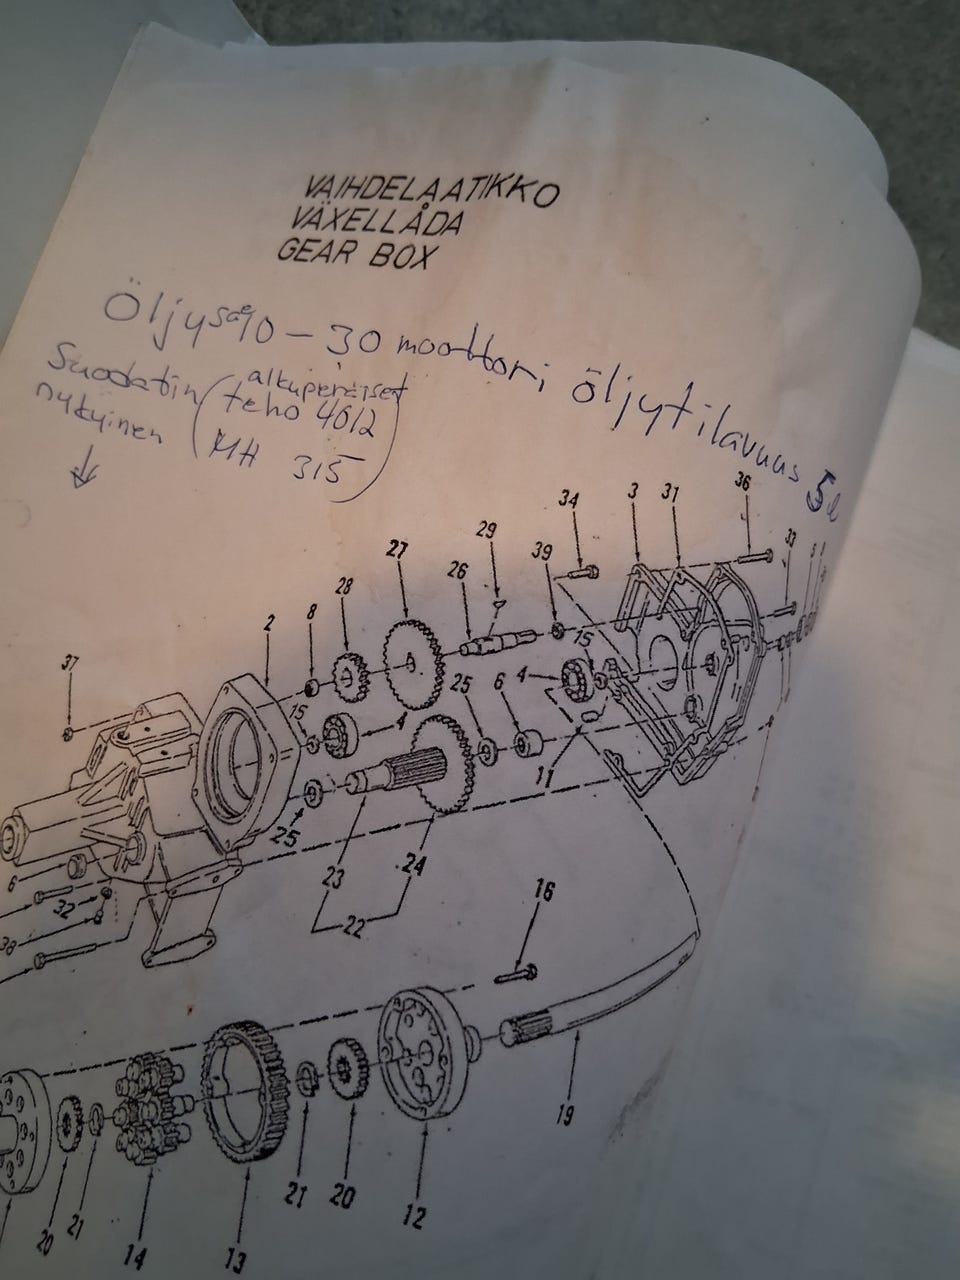 VAIHDELAATIKKO
VÄXELLÅDA
GEAR BOX
Öljy sae 10-30 moottori öljytilavuus 5l
Suodatin (alkuperäiset
nykyinen teho 4012
MH 315)
36
34 3 31
29 33
39
27 26
28
8
2 15
4
25 6
37 15 4
11
25
24
6 23
32
22
38 16
19
21 20 12
20 21 14 13